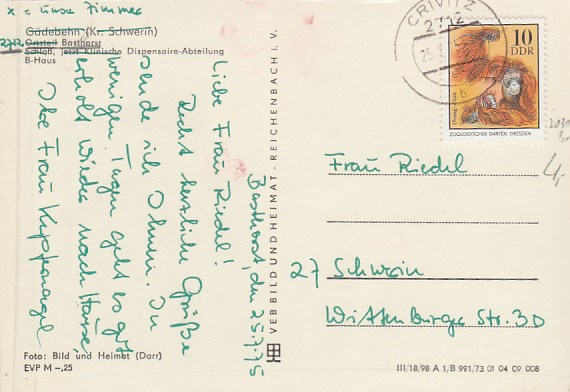 x = unser Zimmer
Gädebehn (Kr. Schwerin)
2712 Ortsteil Basthorst
Schloß, jetzt Klinische Dispensaire-Abteilung
B-Haus
Basthorst, den 25.7.75
Liebe Frau Riedel!
Recht herzliche Grüße
sende ich Ihnen. In
wenigen Tagen geht es gut
erholt wieder nach Hause,
Ihre Frau
Foto: Bild und Heimat (Darr)
EVP M –,25
VEB BILD UND HEIMAT · REICHENBACH I. V.
CRIVITZ
2712
b
10
DDR
Orang-Utan
ZOOLOGISCHER GARTEN DRESDEN
Frau Riedel
27 Schwerin
Wittenburger Str. 30
III/18/98 A 1, B 991/73 01 04 09 008